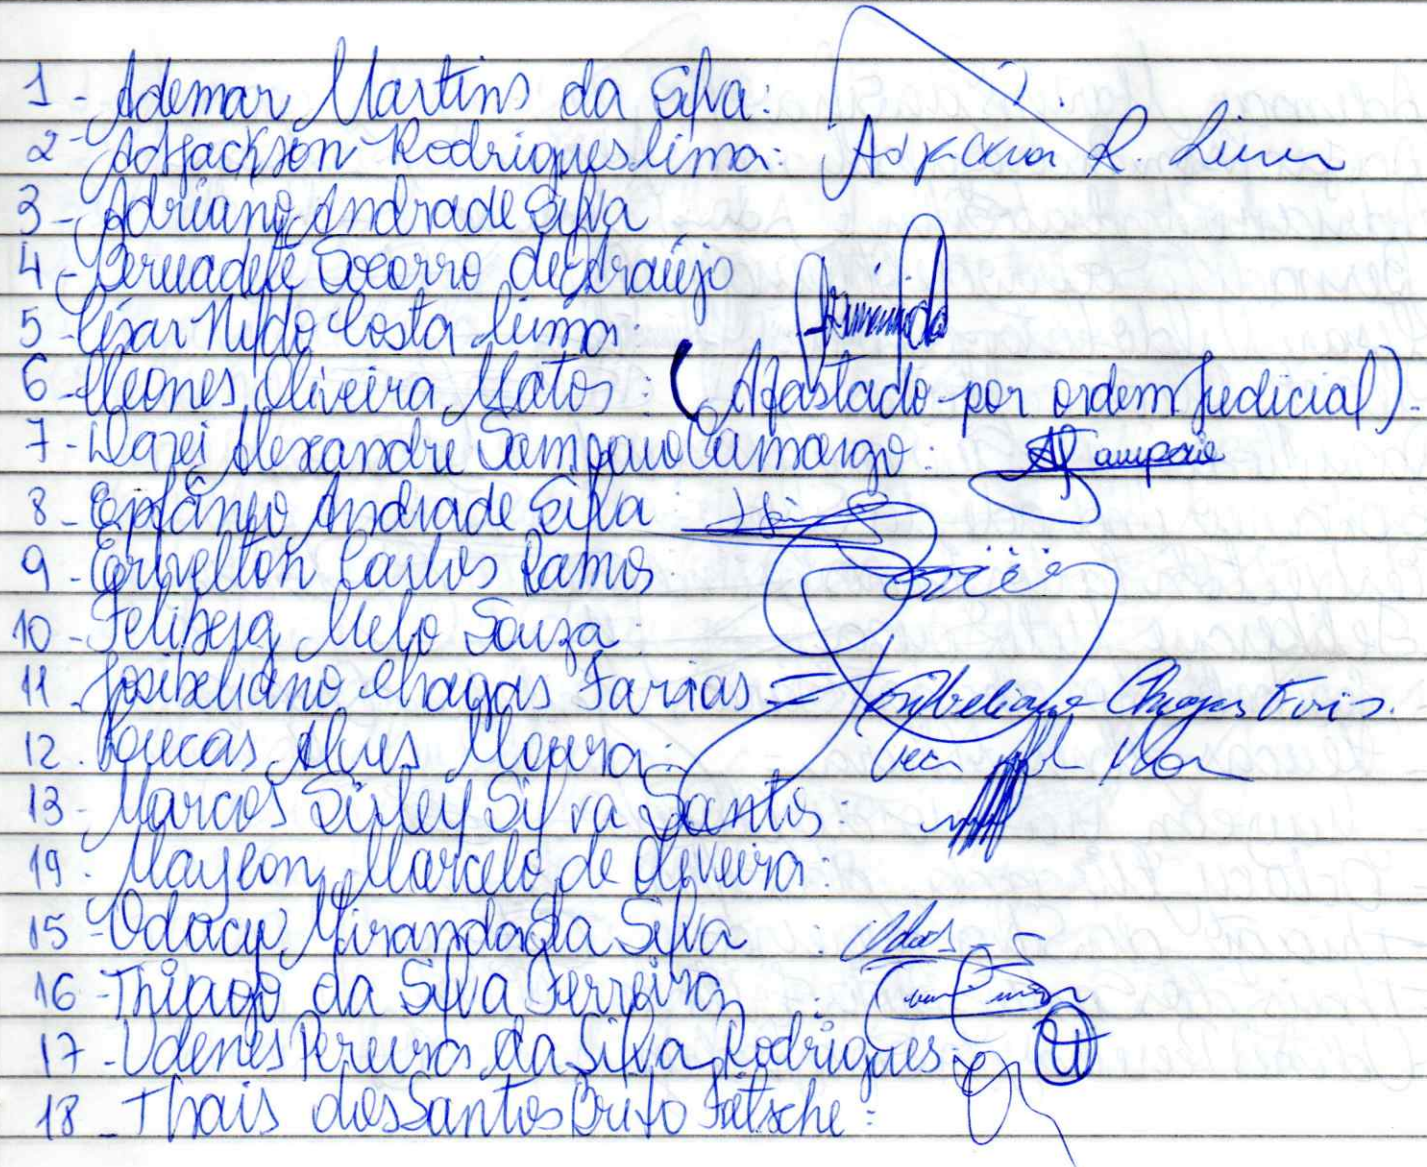 1 - Ademar Martins da Silva:
2 - Adjackson Rodrigues lima: R. Lima
3 - Adriano Andrade Silva
4 - Bernadete Socorro de Araújo
5 - César Nildo Costa lima:
6 - Cleones Oliveira Matos: (Afastado por ordem Judicial).
7 - Darei Alexandre Sampaio Camargo: Sampaio
8 - Epifânio Andrade Silva:
9 - Erivelton Carlos Ramos:
10 - Feliberg Melo Souza:
11 - Josibeliano Chagas Farias = Josibeliano Chagas Farias.
12. Loucas Alves Moura:
13 - Marcos Sisley Silva Santos:
19. Mayson Marcelo de Oliveira:
15 - Odacy Miranda da Silva:
16 - Thiago da Silva Ferreira:
17 - Udenes Pereira da Silva Rodrigues:
18 - Thais dos Santos Brito Fetsche: